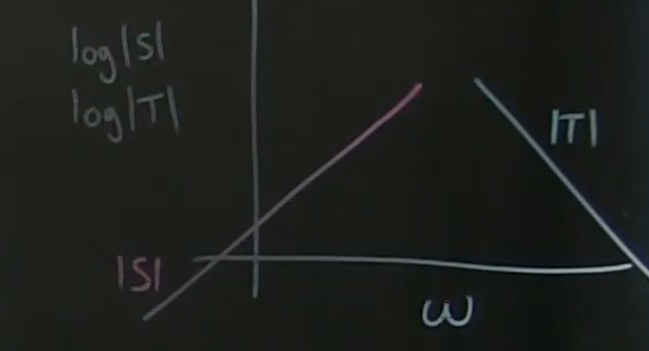 log|S|
log|T|
|T|
|S|
ω